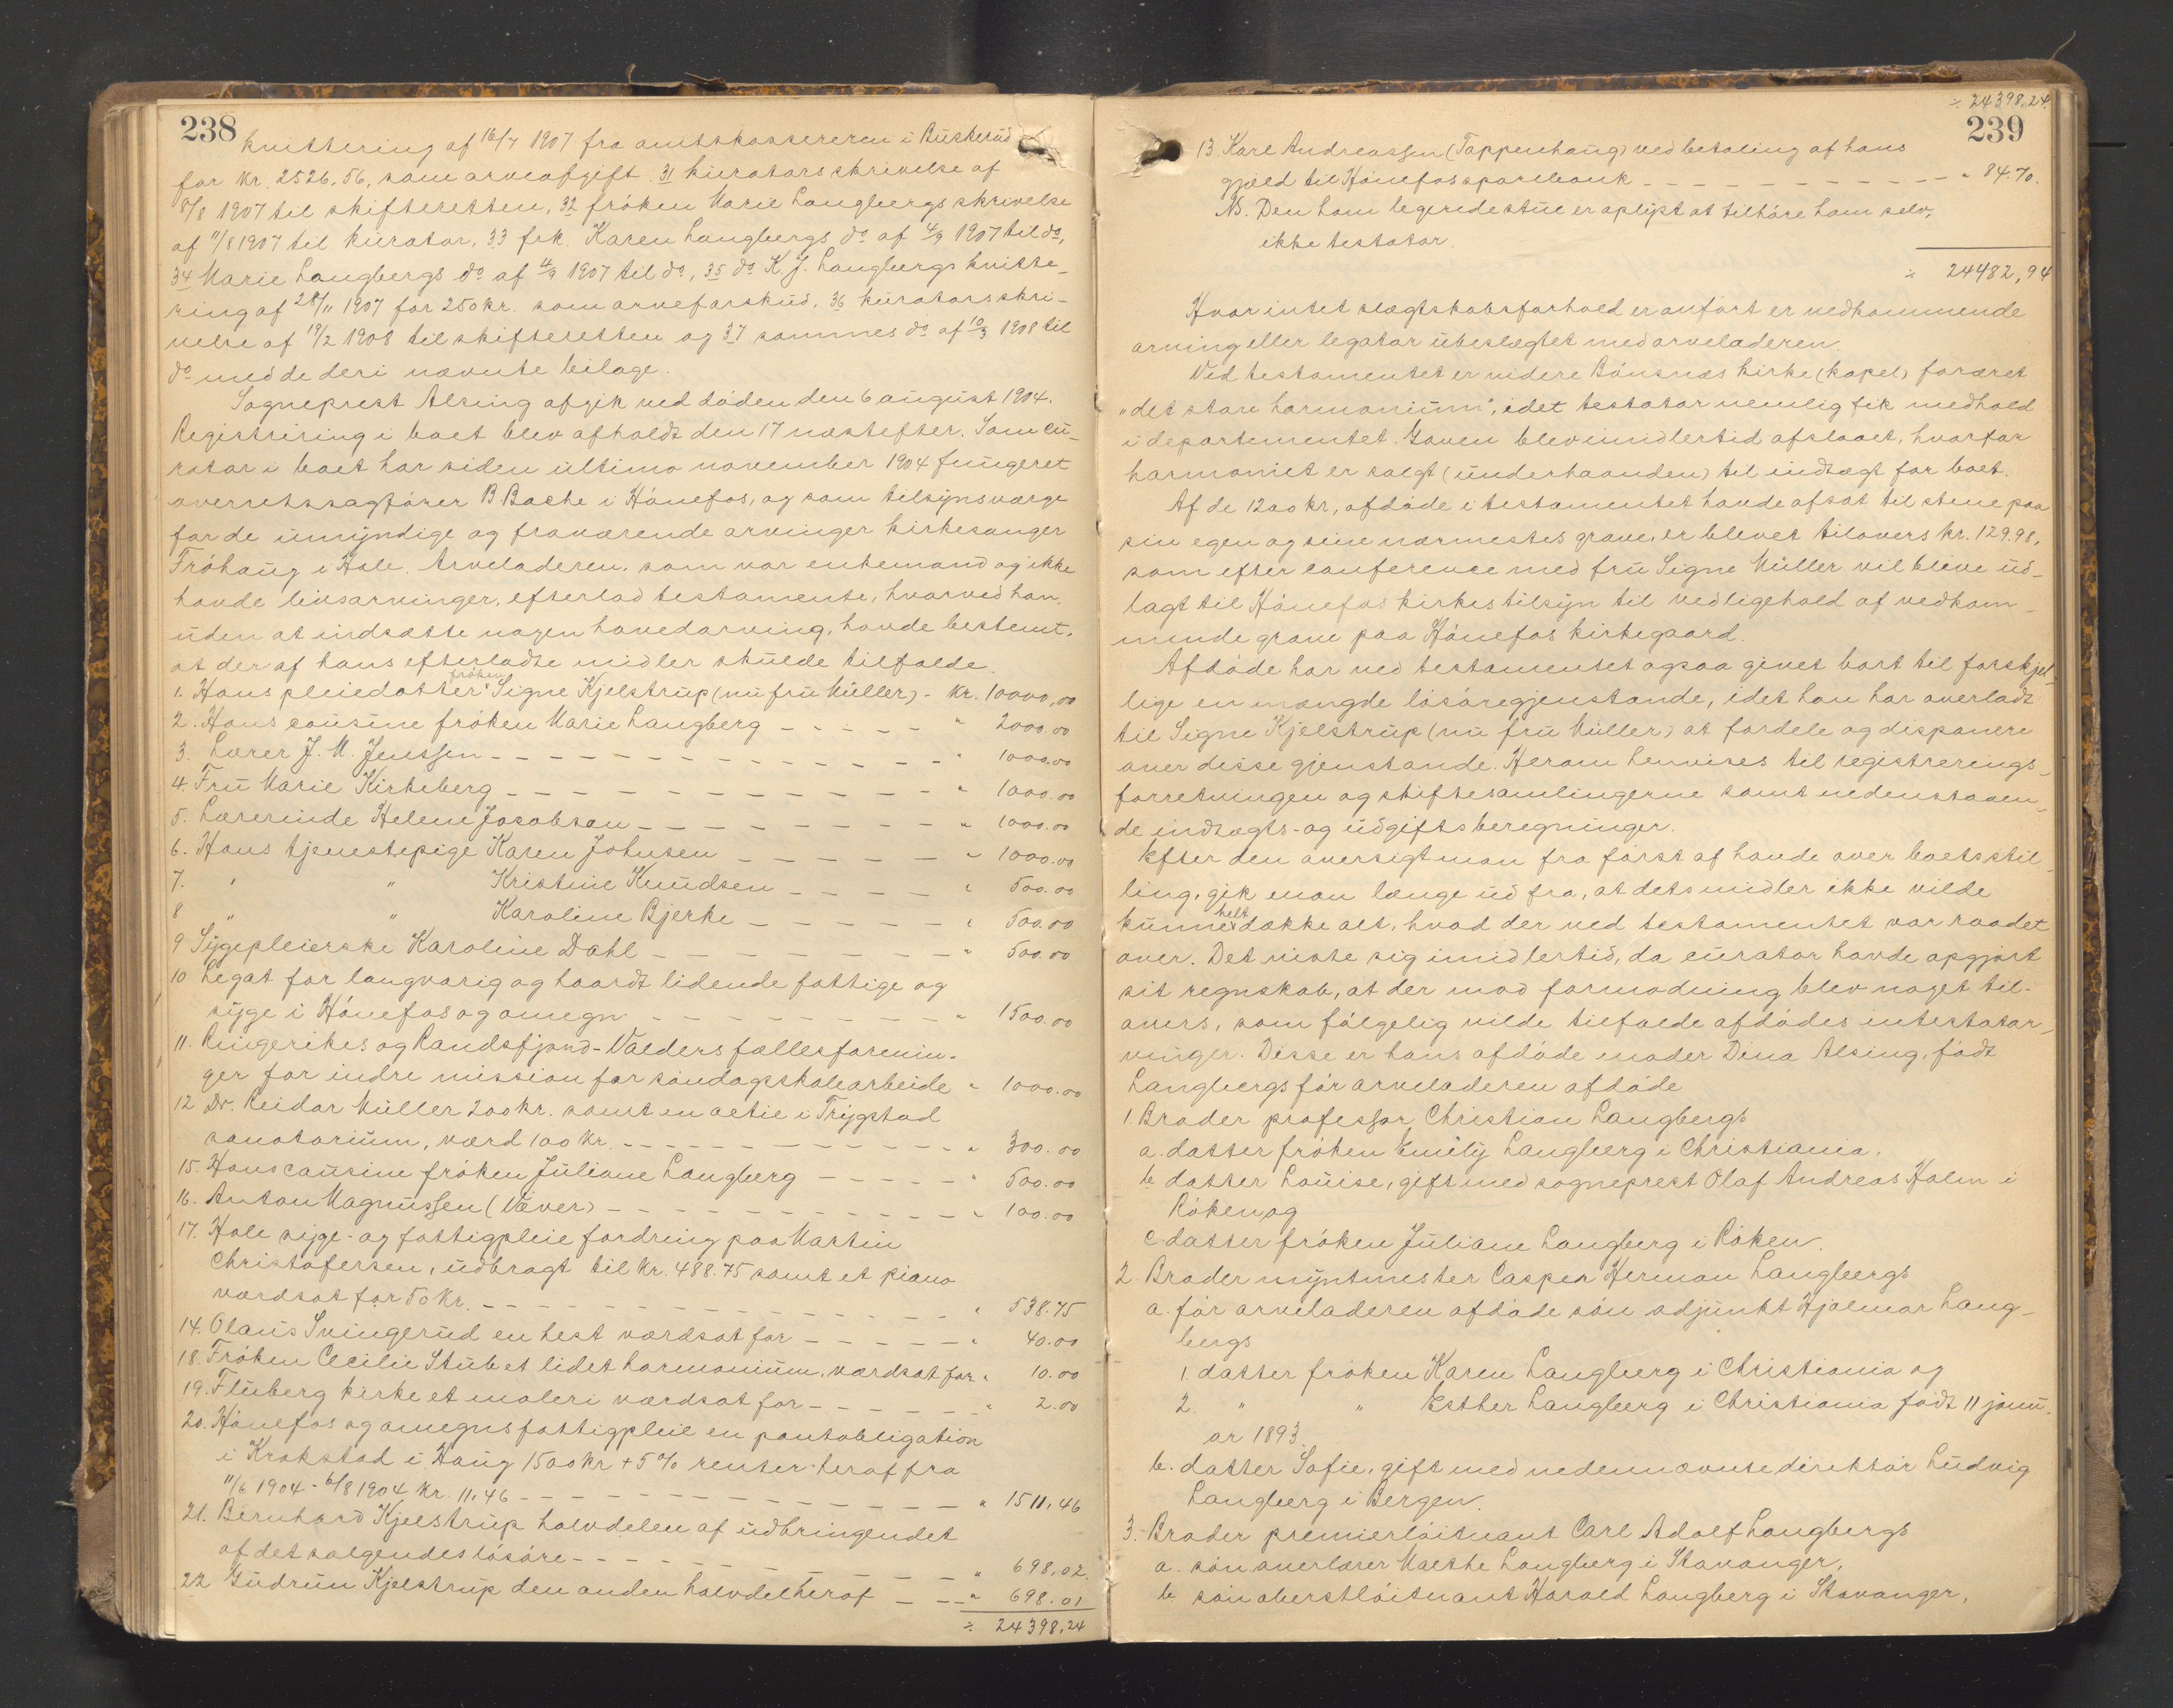 238
kvittering af 16/7 1907 fra amtskassereren i Buskerud
for kr. 2526,56, som arveafgift. 31 kurators skrivelse af
8/8 1907 til skifteretten, 32 fröken Marie Langbergs skrivelse
af 11/8 1907 til kurator, 33 frk. Karen Langbergs do af 4/9 1907 til do,
34 Marie Langbergs do af 4/9 1907 til do, 35 do K. J. Langbergs kvitte-
ring af 28/11 1907 for 250 kr. som arveforskud, 36 kurators skri-
velse af 19/2 1908 til skifteretten og 37 sammes do af 10/3 1908 til
do med de deri nævnte bilage.
Sogneprest Alsing afgik ved döden den 6 august 1904.
Registrering i boet blev afholdt den 17 næstefter. Som cu-
rator i boet har siden ultimo november 1904 fungeret
overretssagförer B Bache i Hönefos, og som tilsynsværge
for de umyndige og fraværende arvinger kirkesanger
Fröhaug i Hole. Arveladeren, som var enkemand og ikke
havde livsarvinger, efterlod testamente, hvorved han,
uden at indsætte nogen hovedarving, havde bestemt,
at der af hans efterladte midler skulde tilfalde
1. Hans pleiedatter fröken Signe Kjelstrup (nu fru Müller) - kr. 10000,00
2. Hans cousine fröken Marie Langberg - - - - - " 2000.00
3. Lærer J. M. Jenssen - - - - - - - - - - - - - - " 1000.00
4. Fru Marie Kirkeberg - - - - - - - - - - - - - " 1000.00
5. Lærerinde Helene Jacobsen - - - - - - - - - " 1000.00
6. Hans tjenestepige Karen Johnsen - - - - - - " 1000.00
7. " " Kristine Knudsen - - - - " 500.00
8 " " Karoline Bjerke - - - - - " 500.00
9 Sygepleierske Karoline Dahl - - - - - - - - " 500.00
10 Legat for langvarig og haardt lidende fattige og
syge i Hönefos og omegn - - - - - - - - - " 1500.00
11. Ringerikes og Randsfjord-Valders fællesforenin-
ger for indre mission for söndagsskolearbeide " 1000.00
12 Dr. Reidar Müller 200 kr. samt en actie i Trygstad
sanatorium, værd 100 kr. - - - - - - - - - - - - " 300.00
15. Hans cousine fröken Juliane Langberg - - - - - " 500.00
16. Anton Magnussen (Væver) - - - - - - - - - - - " 100.00
17. Hole syge- og fattigpleie fordring paa Martin
Christofersen, udbragt til kr. 488.75 samt et piano
værdsat for 50 kr. - - - - - - - - - - - - - - - " 538.75
14. Olaus Svingerud en hest værdsat for - - - - - " 40.00
18. Fröken Cecilie Stub et lidet harmonium, værdsat for " 10.00
19. Fluberg kirke et maleri værdsat for - - - - - - " 2.00
20. Hönefos og omegns fattigpleie en pantobligation
i Krakstad i Haug 1500 kr + 5% renter heraf fra
11/6 1904 - 6/8 1904 kr. 11,46 - - - - - - - - - - - - - " 1511,46
21. Bernhard Kjelstrup halvdelen af udbringendet
af det salgendes lösöre - - - - - - - - - - - " 698,02.
22 Gudrun Kjelstrup den anden halvdel heraf - - - " 698.01
÷ 24398,24
÷ 24398,24.
239
13. Karl Andreassen (Tappenhaug) ved betaling af hans
gjæld til Hönefos sparebank - - - - - - - - - - - " 84.70.
NB. Den ham legerede stue er oplyst at tilhöre ham selv,
ikke testator.
÷ 24482,94
Hvor intet slægtskabsforhold er anfört er vedkommende
arving eller legatar ubeslægtet med arveladeren.
Ved testamentet er videre Bönsnæs kirke (kapel) foræret
"det store harmonium", idet testator nemlig fik medhold
i departementet. Gaven blev imidlertid afslaaet, hvorfor
harmoniet er solgt (underhaanden) til indtægt for boet.
Af de 1200 kr, afdöde i testamentet havde afsat til stene paa
sin egen og sine nærmestes grave, er blevet tilovers kr. 129.98,
som efter conference med fru Signe Müller vil blive ud-
lagt til Hönefos kirkes tilsyn til vedligehold af vedkom-
mende grave paa Hönefos kirkegaard.
Afdöde har ved testamentet ogsaa givet bort til forskjel-
lige en mængde lösöregjenstande, idet han har overladt
til Signe Kjelstrup (nu fru Müller) at fordele og disponere
over disse gjenstande. Herom henvises til registrerings-
forretningen og skiftesamlingerne samt nedenstaaen-
de indtægts- og udgiftsberegninger.
Efter den oversigt man fra först af havde over boets stil-
ling, gik man længe ud fra, at dets midler ikke vilde
kunne helt dække alt, hvad der ved testamentet var raadet
over. Det viste sig imidlertid, da curator havde opgjort
sit regnskab, at der mod formodning blev noget til-
overs, som fölgelig vilde tilfalde afdödes intestatar-
vinger. Disse er hans afdöde moder Dina Alsing, födt
Langbergs för arveladeren afdöde
1. Broder professor Christian Langbergs
a. datter fröken Emily Langberg i Christiania,
b datter Louise, gift med sogneprest Olaf Andreas Holm i
Röken og
c datter fröken Juliane Langberg i Röken.
2. Broder myntmester Caspar Herman Langbergs
a. för arveladeren afdöde sön adjunkt Hjalmar Lang-
bergs
1. datter fröken Karen Langberg i Christiania og
2. " " Esther Langberg i Christiania födt 11 janu-
ar 1893.
b. datter Sofie, gift med nedennævnte direktör Ludvig
Langberg i Bergen.
3. Broder premierlöitnant Carl Adolf Langbergs
a. sön overlærer Malthe Langberg i Stavanger,
b sön oberstlöitnant Harald Langberg i Stavanger,